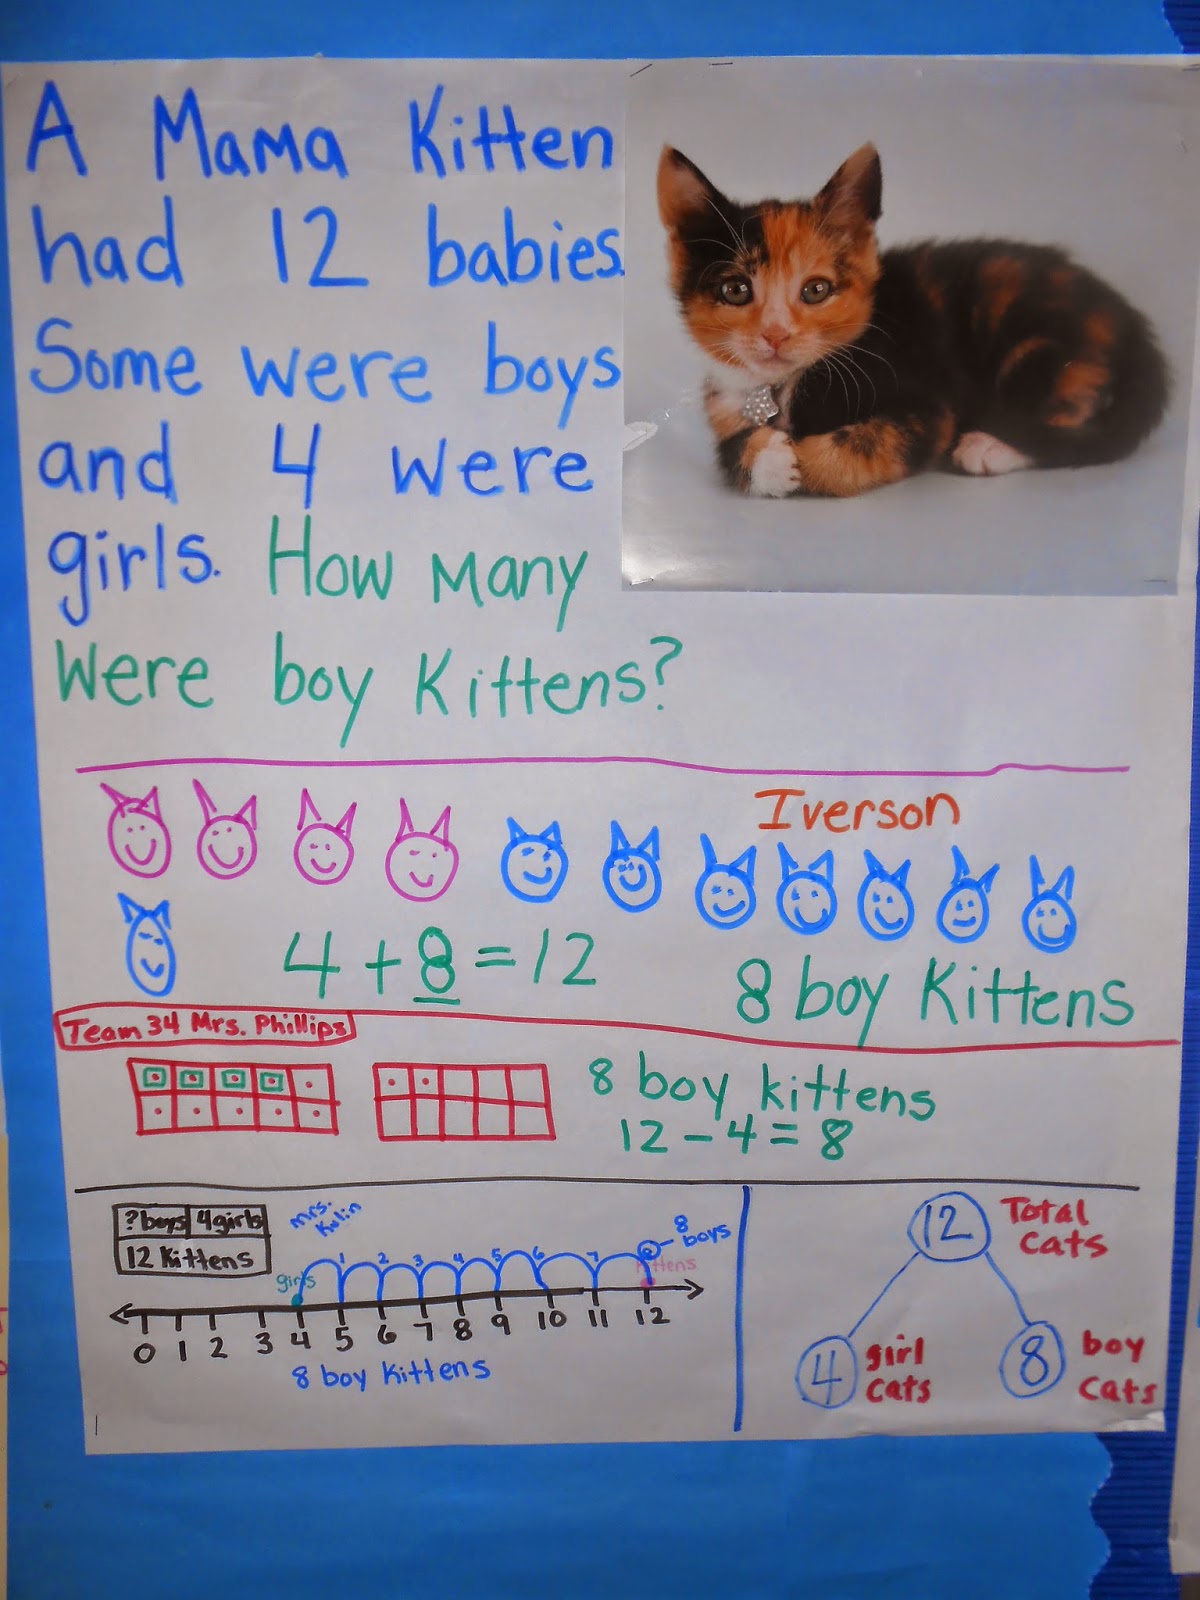 A Mama Kitten
had 12 babies.
Some were boys
and 4 were
girls. How many
were boy Kittens?
Iverson
4 + 8 = 12
8 boy Kittens
Team 34 Mrs. Phillips
8 boy kittens
12 - 4 = 8
? boys 4 girls
12 Kittens
Mrs.
Kulin
girls
1 2 3 4 5 6 7 8
8
boys
Kittens
0 1 2 3 4 5 6 7 8 9 10 11 12
8 boy Kittens
12 Total
cats
4 girl
cats
8 boy
cats